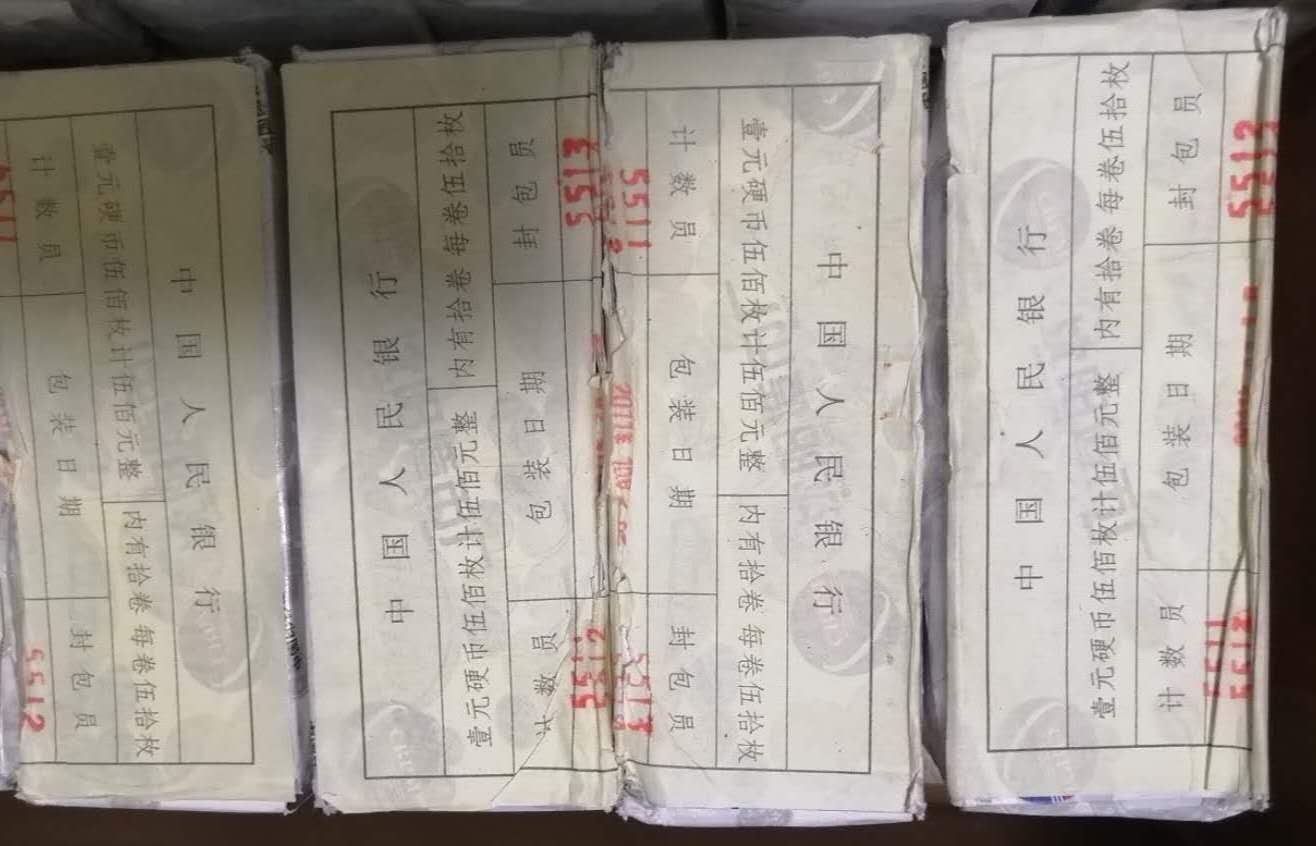 中国人民银行
壹元硬币伍佰枚计伍佰元整
内有拾卷 每卷伍拾枚
计数员
包装日期
封包员
5511
5512
中国人民银行
壹元硬币伍佰枚计伍佰元整
内有拾卷 每卷伍拾枚
计数员
包装日期
封包员
5512
5513
中国人民银行
壹元硬币伍佰枚计伍佰元整
内有拾卷 每卷伍拾枚
计数员
包装日期
封包员
5511
5513
中国人民银行
壹元硬币伍佰枚计伍佰元整
内有拾卷 每卷伍拾枚
计数员
包装日期
封包员
5511
5512
5513